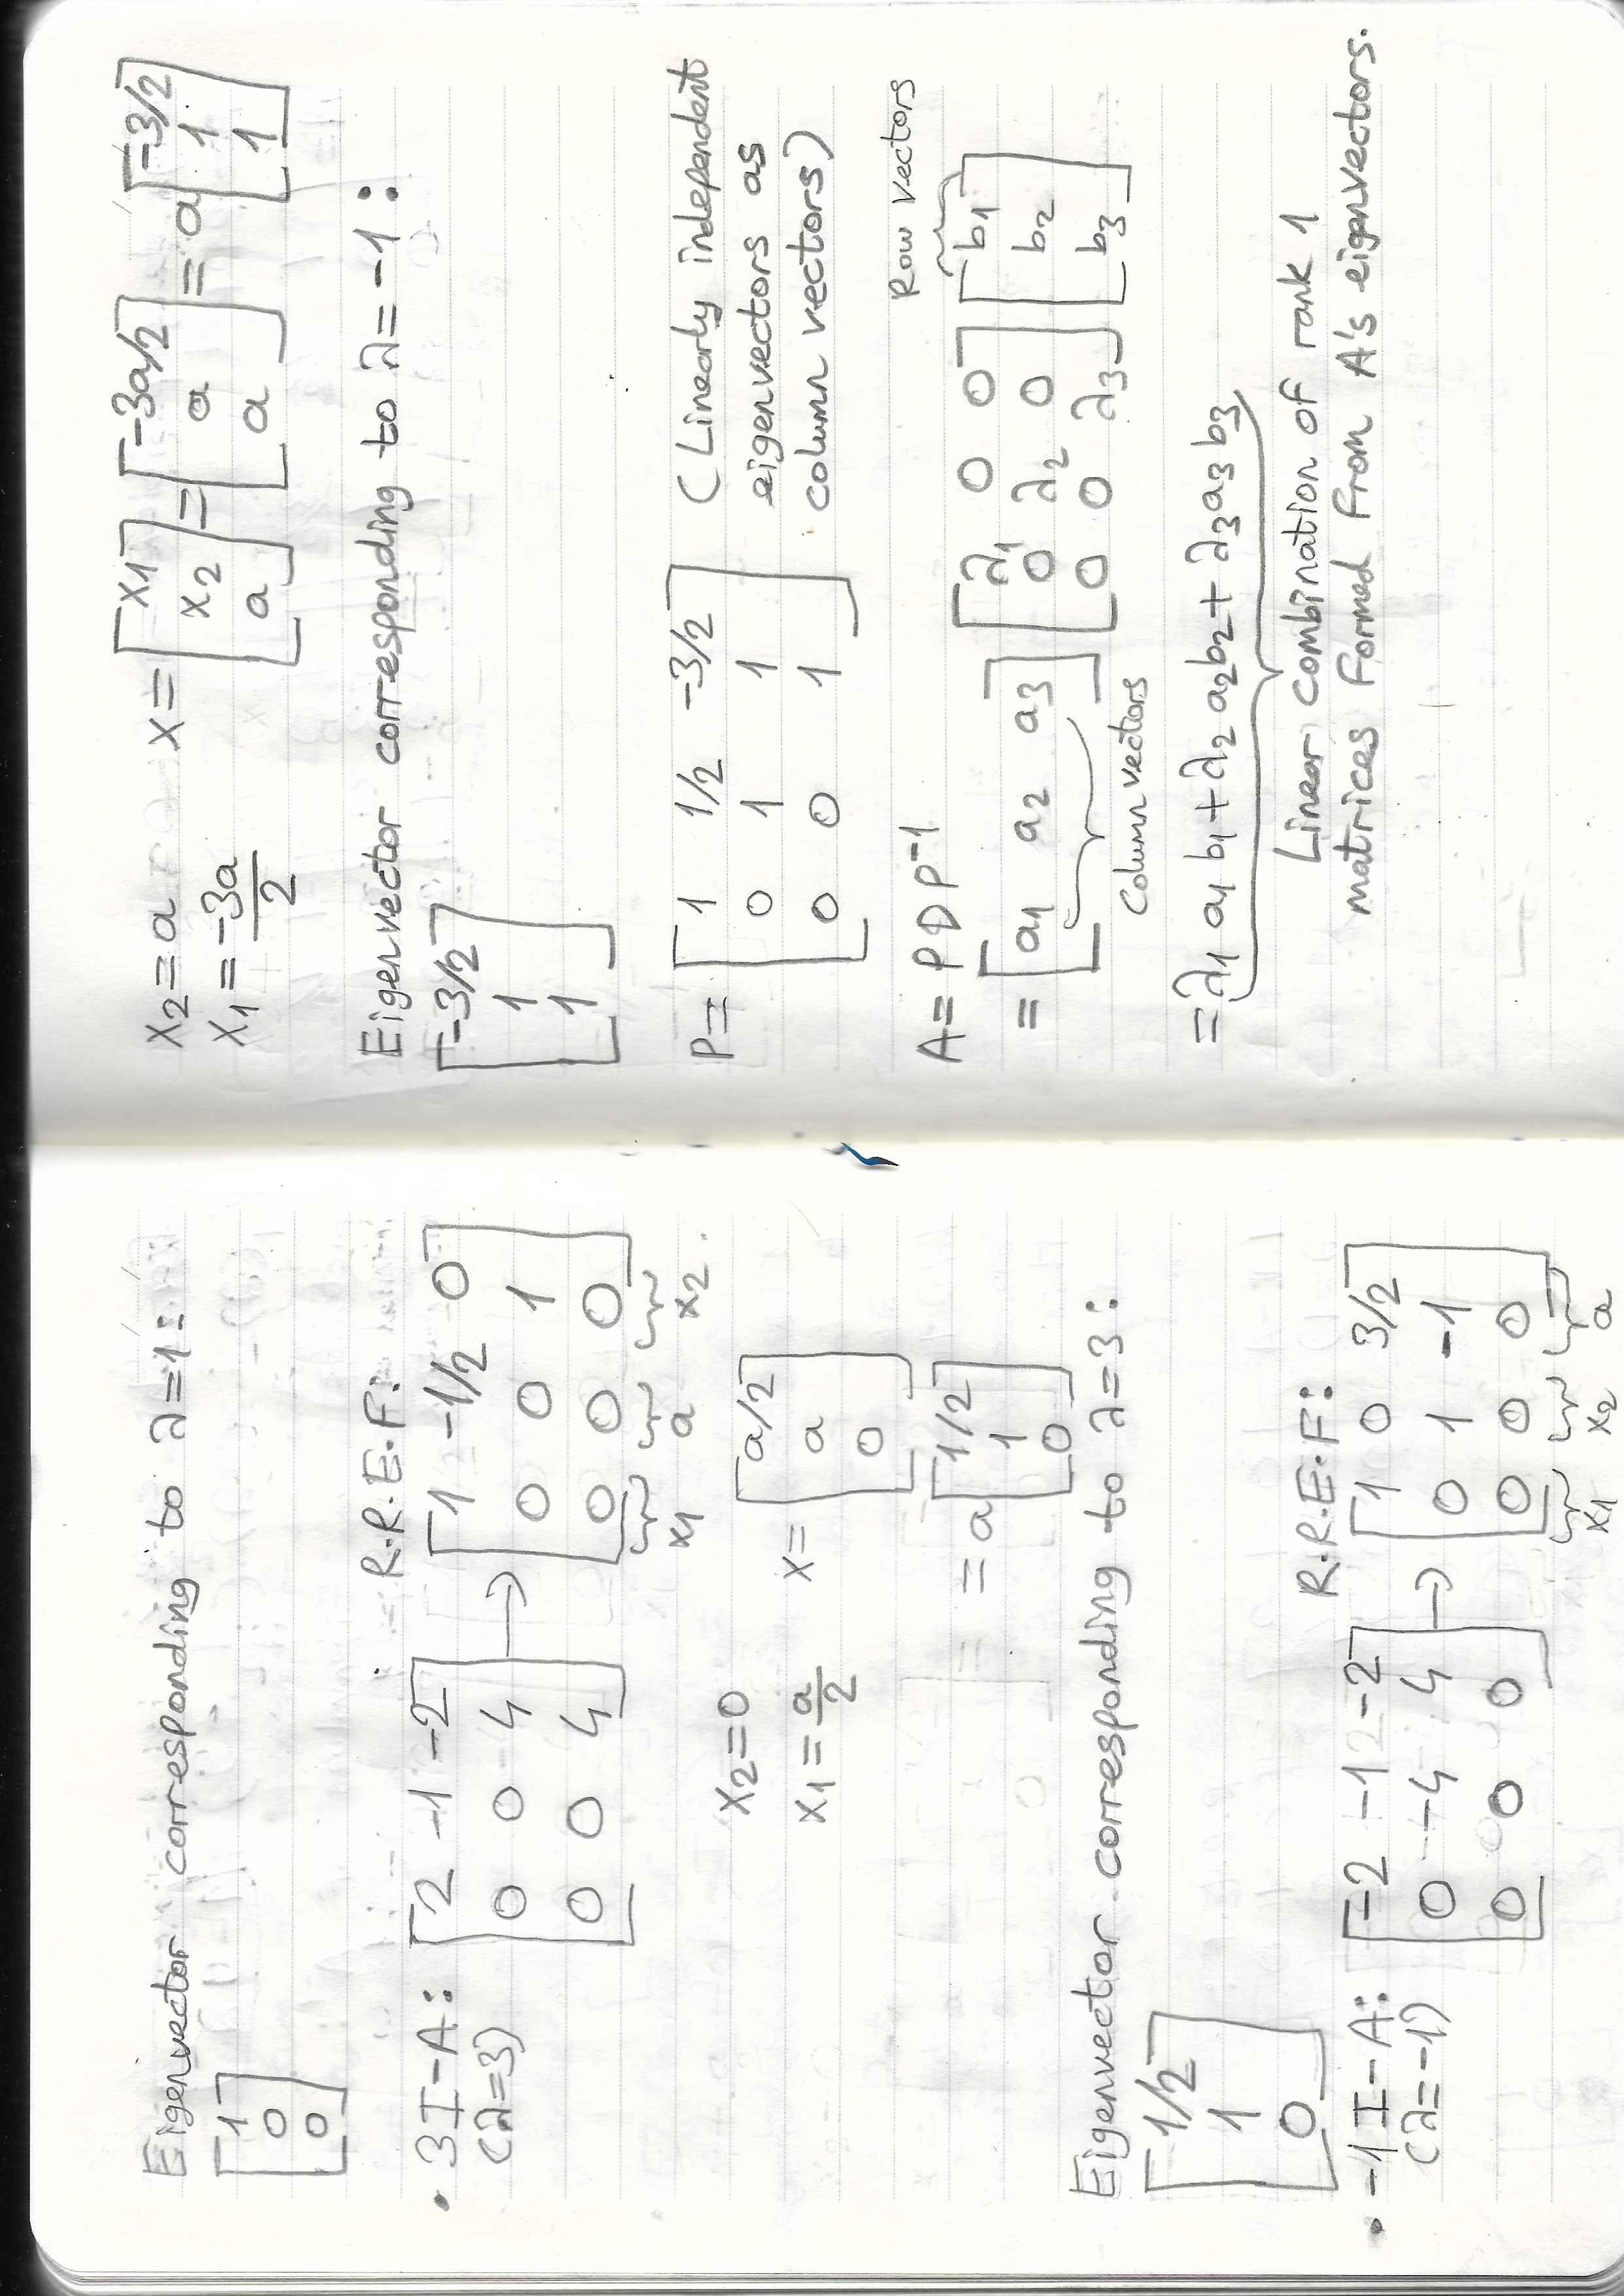 Eigenvector corresponding to λ=1:
[1
0
0]
R.R.E.F:
• 3I-A: [2 -1 -2 → [1 -1/2 0
(λ=3) 0 0 4 0 0 1
0 0 4] 0 0 0]
x1 a x2
x2=0
x1=a/2 x=[a/2
a
0]
=a[1/2
1
0]
Eigenvector corresponding to λ=3:
[1/2
1
0]
R.R.E.F:
• -1I-A: [-2 -1 -2 → [1 0 3/2
(λ=-1) 0 -4 4 0 1 -1
0 0 0] 0 0 0]
x1 x2 a
x2=a x=[x1 x2 a]=[-3a/2 a a]=a[-3/2 1 1]
x1=-3a/2
Eigenvector corresponding to λ=-1:
[-3/2
1
1]
P=[1 1/2 -3/2 (Linearly independent
0 1 1 eigenvectors as
0 0 1] column vectors)
Row vectors
A=PDP⁻¹
=[a1 a2 a3] [λ1 0 0 [b1
0 λ2 0 b2
0 0 λ3] b3]
Column vectors
=λ1 a1 b1+λ2 a2b2+λ3a3b3
Linear combination of rank 1
matrices formed from A's eigenvectors.